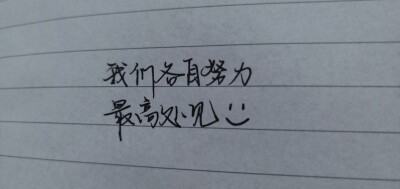 我们各自努力
最高处见